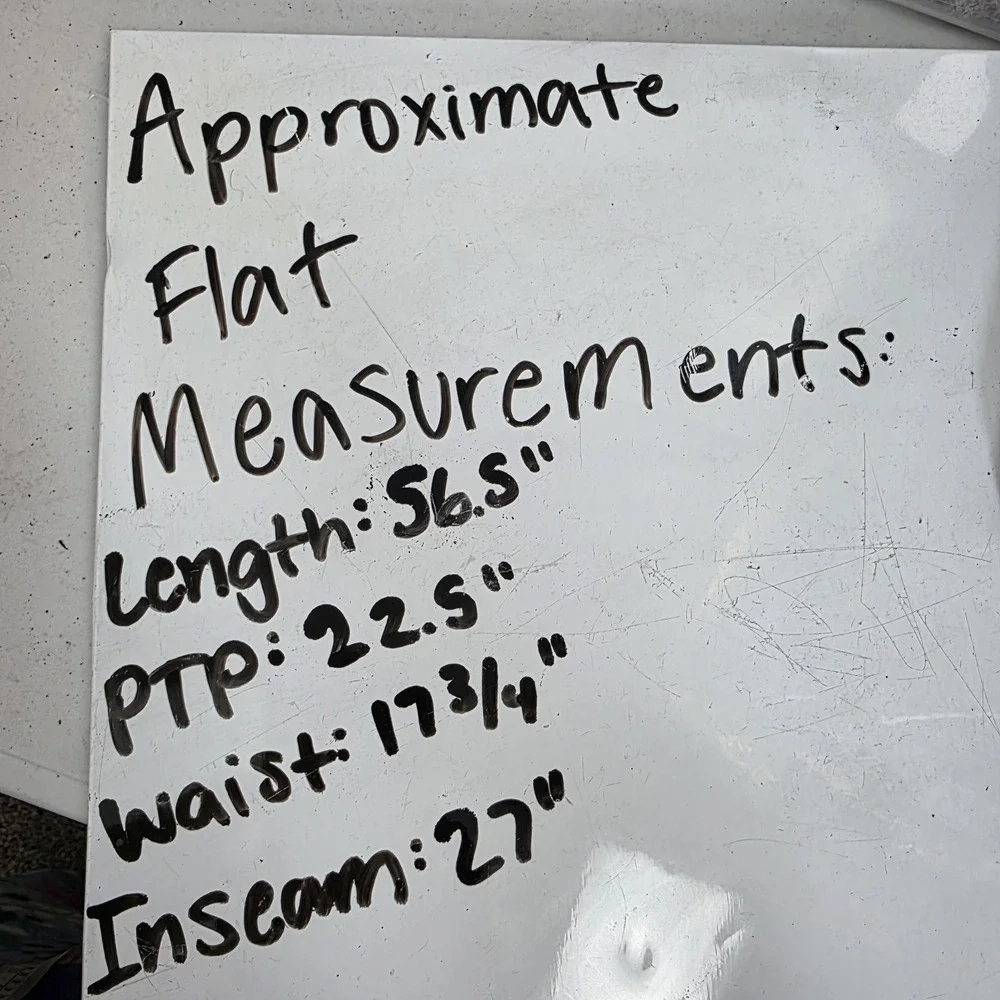 Approximate
Flat
Measurements:
Length: 56.5"
PTP: 22.5"
Waist: 17 3/4"
Inseam: 27"